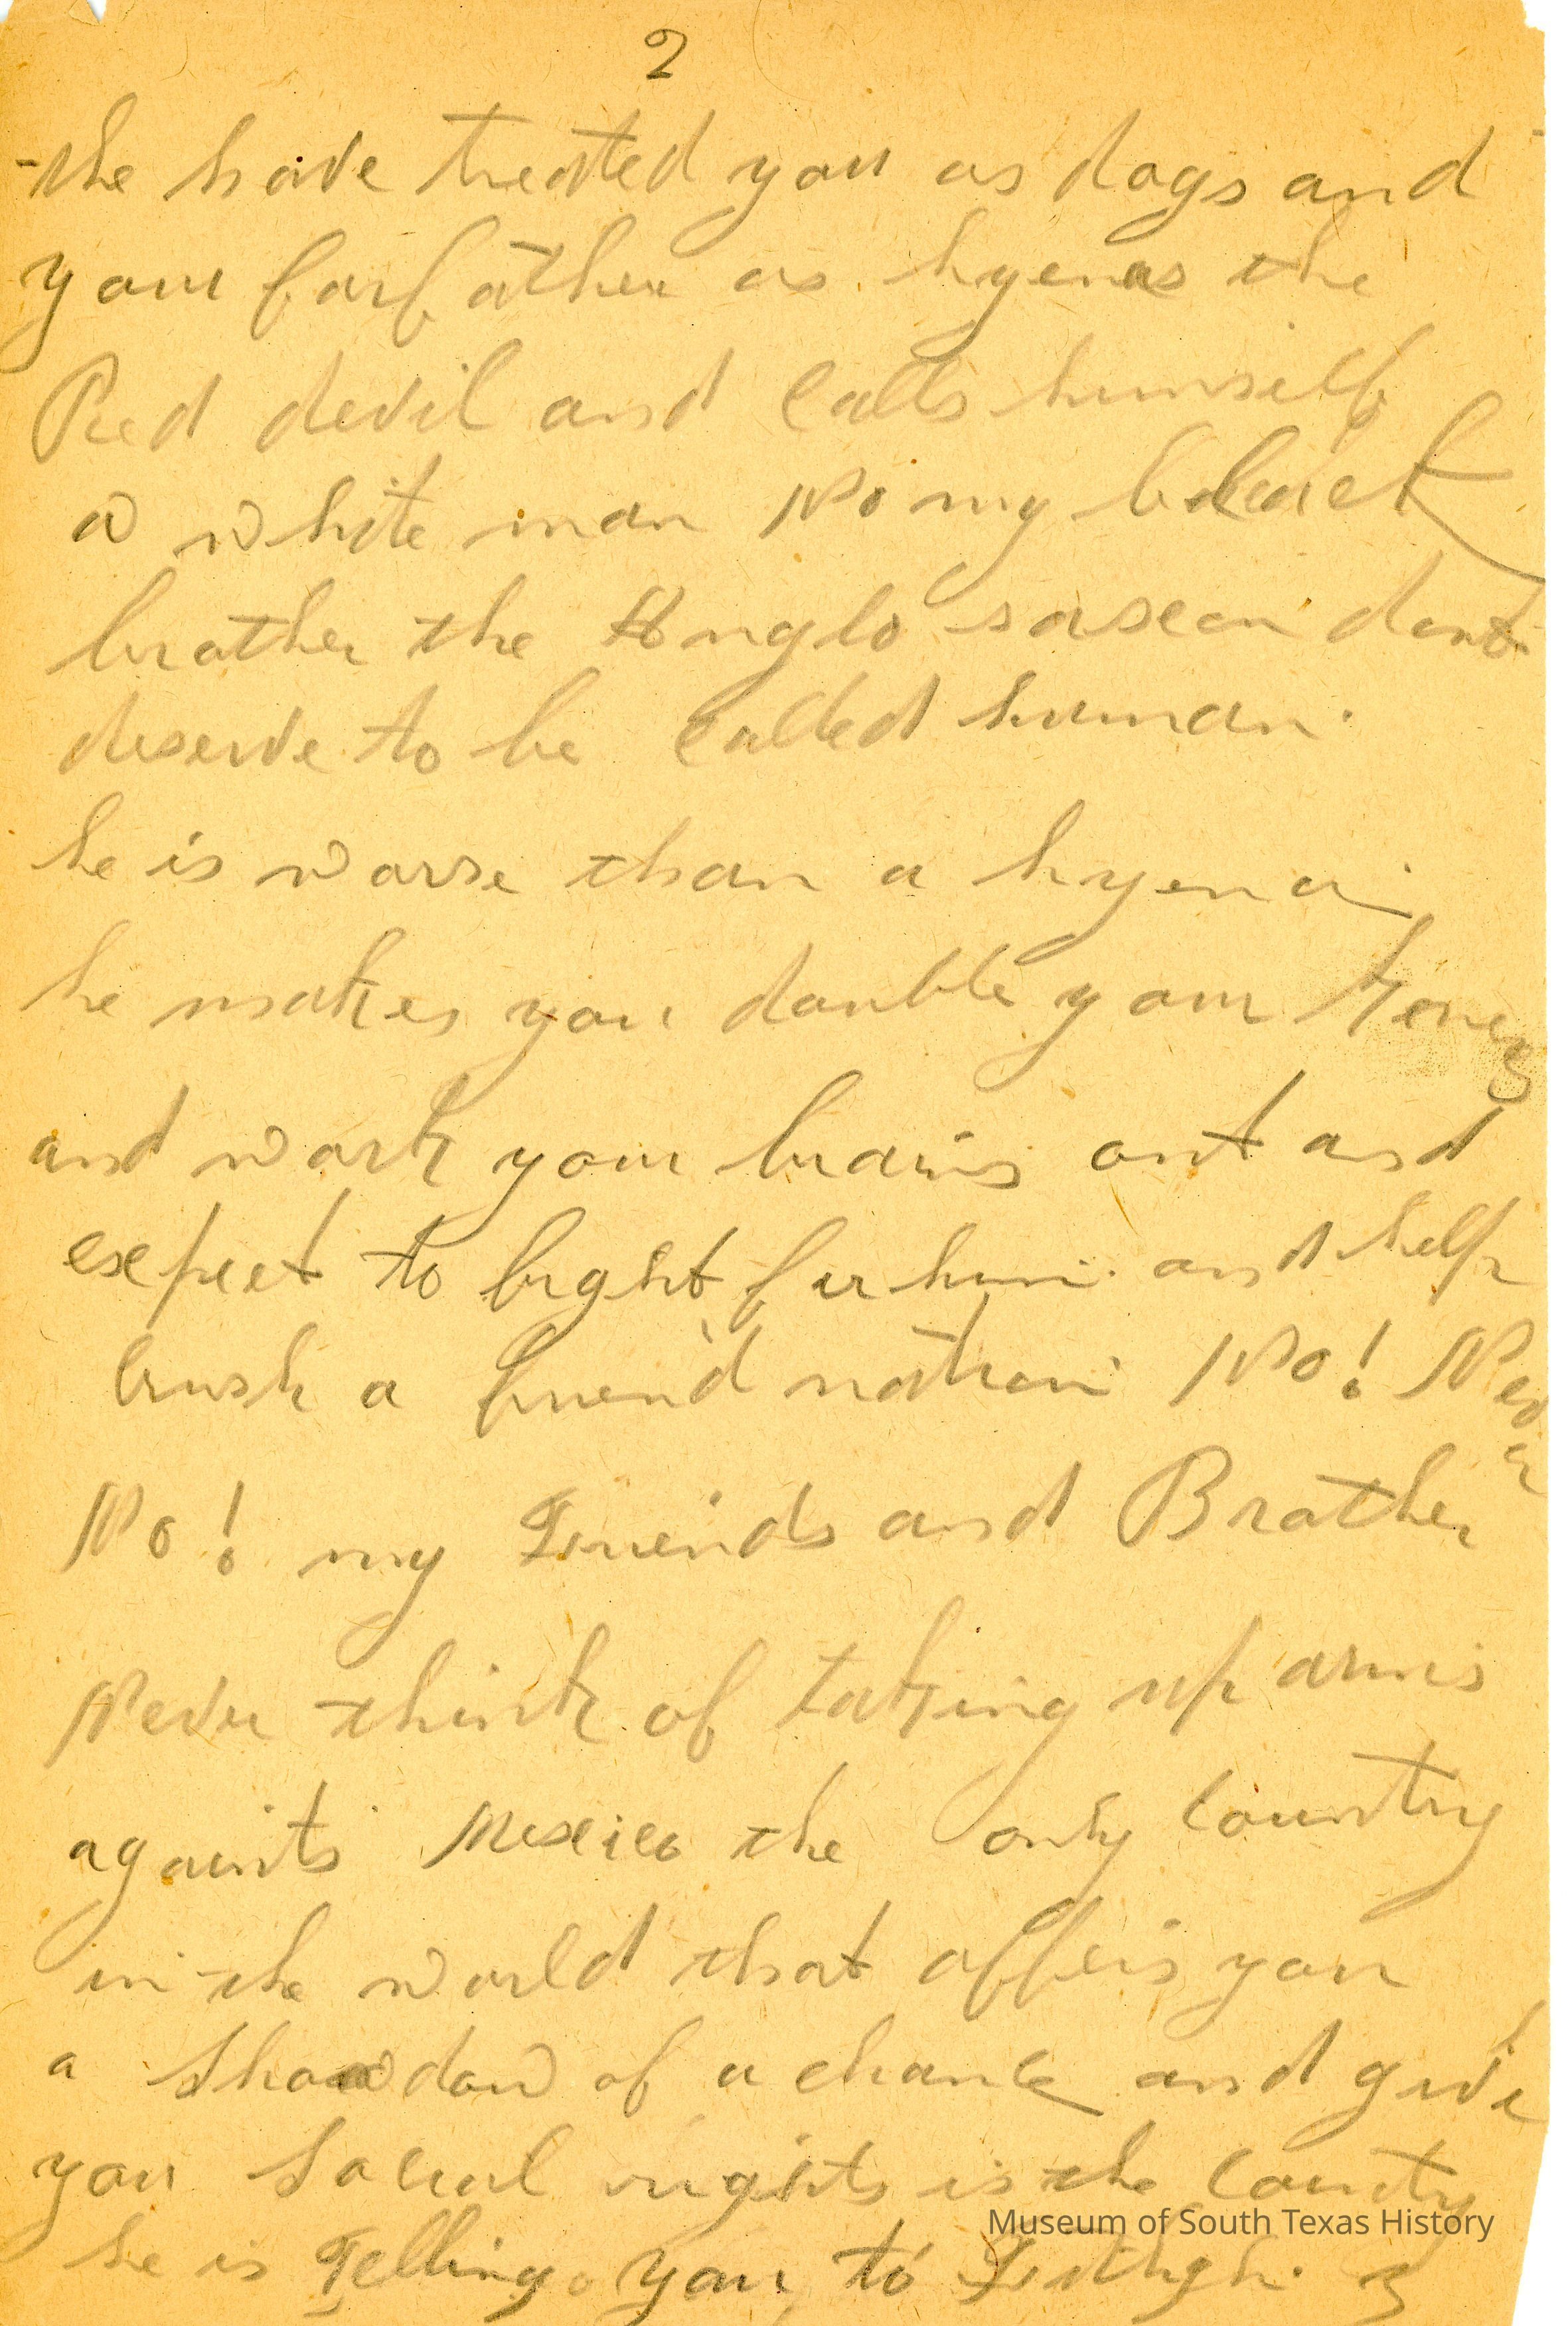 2
the have treated you as dogs and
your forfather as hyenas the
Red devil and calls himself
a white man No my black
brother the Anglo saxcon dont
deserve to be called human.
he is worse than a hyena.
he makes you double your
and work your brains out and
expect to fight for him. and help
crush a friend nation. No! Never
No! my Friends and Brother
Never think of taking up arms
againts Mexico the only country
in the world that offers you
a shawdow of a chance and give
you social rights is the county
Museum of South Texas History
he is Telling you to